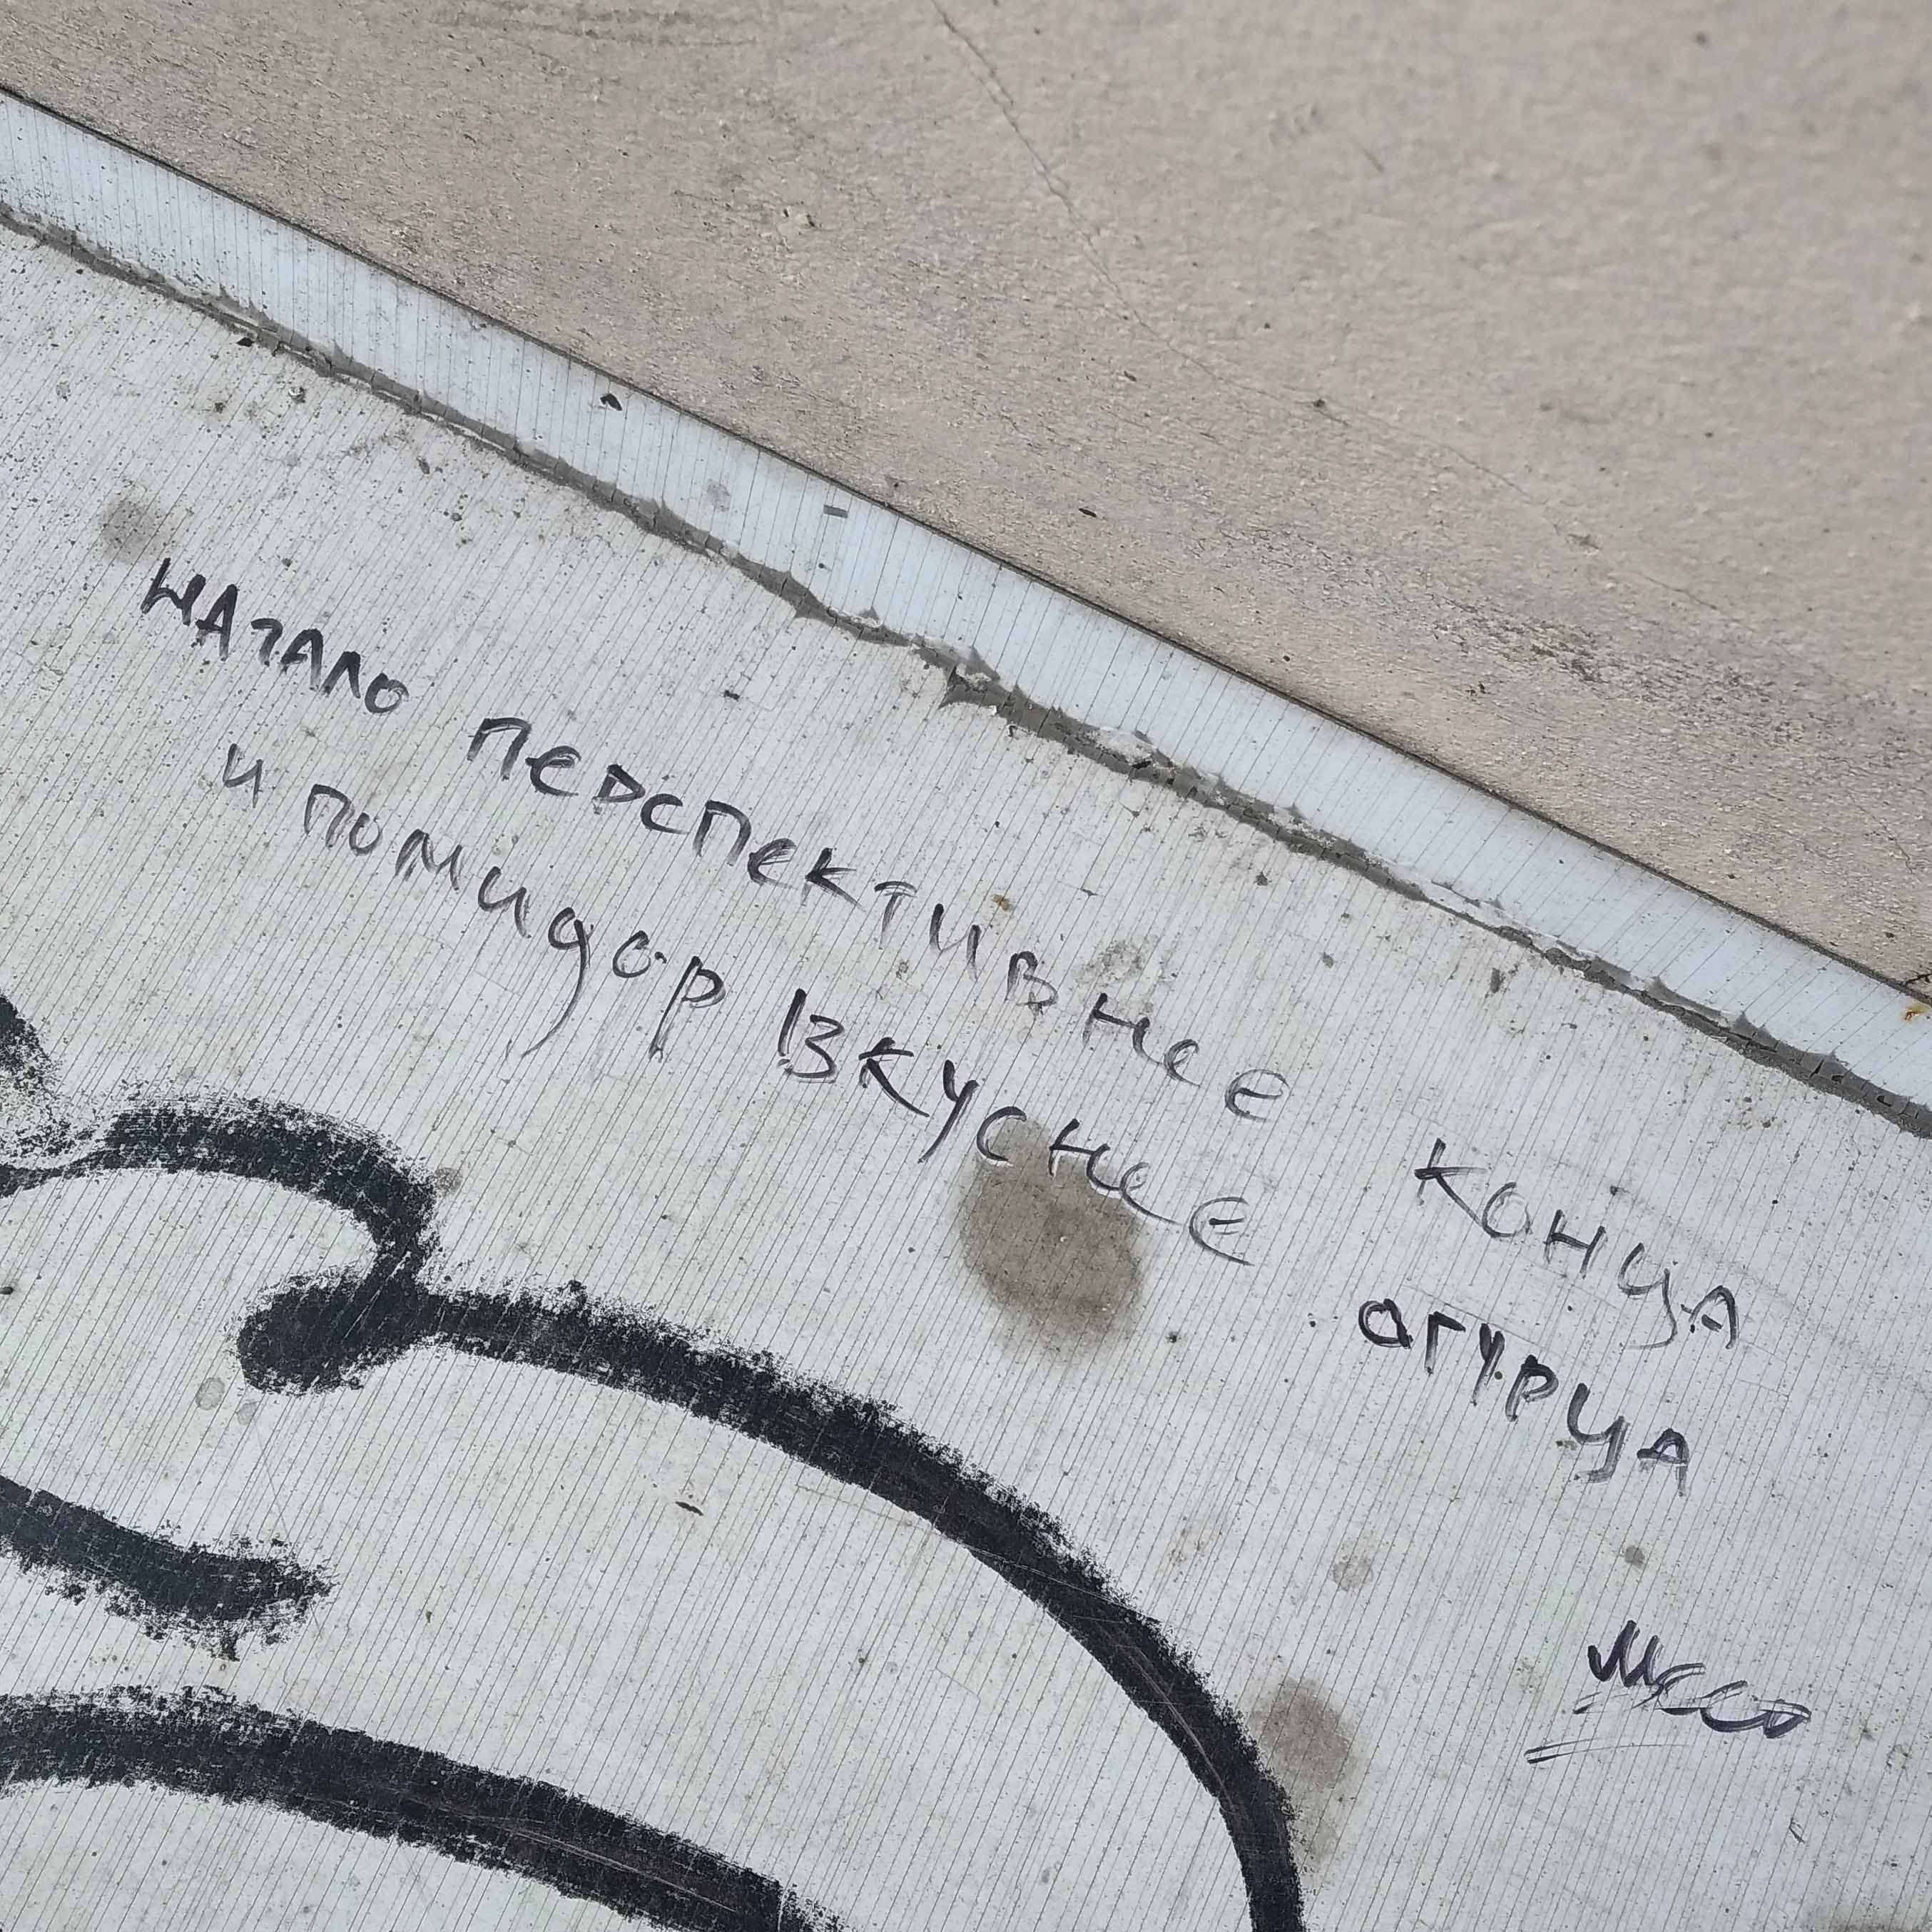 НАЧАЛО ПЕРСПЕКТИВНЕЕ КОНЦА
И ПОМИДОР ВКУСНЕЕ ОГУРЦА